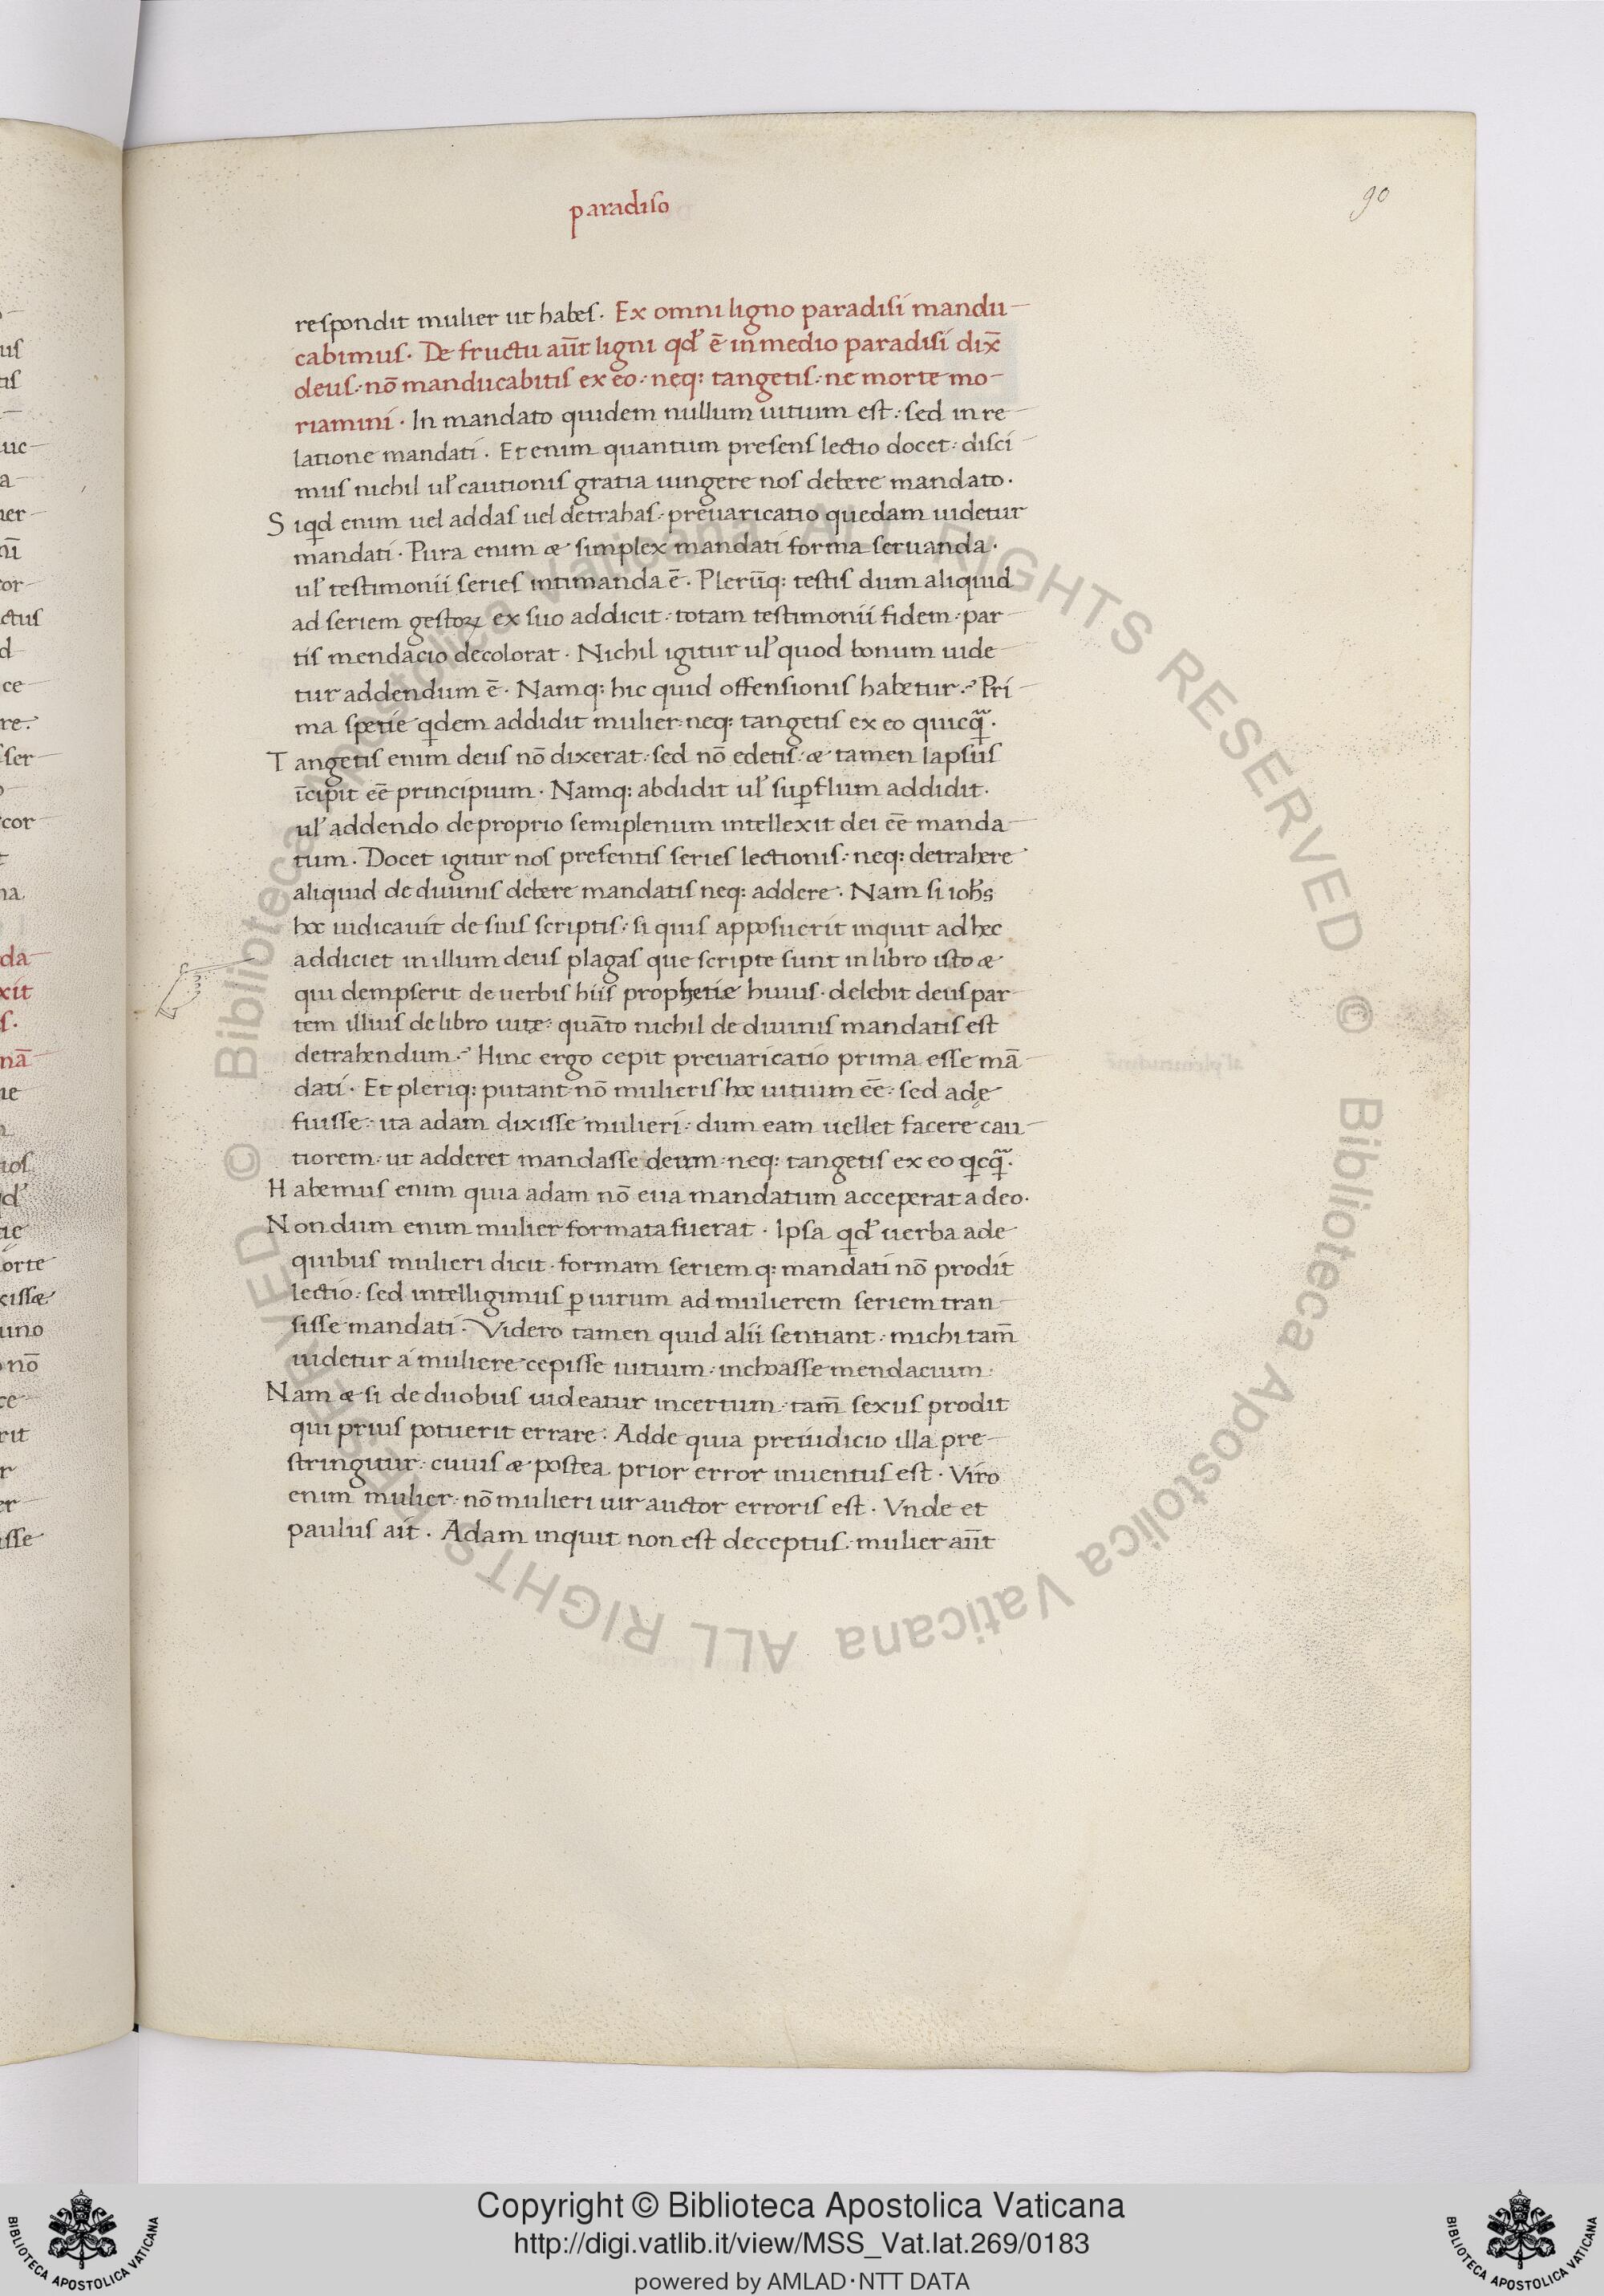 paradiso
90
respondit mulier ut habes. Ex omni ligno paradisi mandu-
cabimus. De fructu aūt ligni qđ ē in medio paradisi dix̄
deus: nō manducabitis ex eo: neq: tangetis: ne morte mo-
riamini. In mandato quidem nullum uitium est: sed in re-
latione mandati. Et enim quantum presens lectio docet: disci-
mus nichil uł cautionis gratia iungere nos debere mandato.
Siqd enim uel addas uel detrahas: preuaricatio quedam uidetur
mandati. Pura enim & simplex mandati forma seruanda.
uł testimonii series intimanda ē. Plerūq: testis dum aliquid
ad seriem gestoꝝ ex suo addicit: totam testimonii fidem: par-
tis mendacio decolorat. Nichil igitur uł quod bonum uide-
tur addendum ē. Namq: hic quid offensionis habetur? Pri-
ma spetie qdem addidit mulier: neq: tangetis ex eo quicq̄.
Tangetis enim deus nō dixerat: sed nō edetis: & tamen lapsus
īcipit eē principium. Namq: abdidit uł suꝑflum addidit.
uł addendo de proprio semiplenum intellexit dei eē manda-
tum. Docet igitur nos presentis series lectionis: neq: detrahere
aliquid de diuinis debere mandatis neq: addere. Nam si ioħs
hoc iudicauit de suis scriptis: si quis apposuerit inquit ad hec
addiciet in illum deus plagas que scripte sunt in libro isto &
qui dempserit de uerbis hiis prophetiæ huius: delebit deus par-
tem illius de libro uitę: quāto nichil de diuinis mandatis est
detrahendum? Hinc ergo cepit preuaricatio prima esse mā-
dati. Et pleriq: putant nō mulieris hoc uitium eē: sed adę
fuisse: ita adam dixisse mulieri: dum eam uellet facere cau-
tiorem: ut adderet mandasse deum: neq: tangetis ex eo qcq̄.
Habemus enim quia adam nō eua mandatum acceperat a deo.
Nondum enim mulier formata fuerat. Ipsa qđ uerba ade
quibus mulieri dicit: formam seriemq: mandati nō prodit
lectio: sed intelligimus ꝑ uirum ad mulierem seriem tran-
sisse mandati. Videro tamen quid alii sentiant: michi tam̄
uidetur a muliere cepisse uitium: inchoasse mendacium.
Nam & si de duobus uideatur incertum: tam̄ sexus prodit
qui prius potuerit errare. Adde quia preiudicio illa pre-
stringitur: cuius & postea prior error inuentus est. Viro
enim mulier: nō mulieri uir auctor erroris est. Vnde et
paulus ait. Adam inquit non est deceptus: mulier aūt
© Biblioteca Apostolica Vaticana ALL RIGHTS RESERVED © Biblioteca Apostolica Vaticana ALL RIGHTS RESERVED
Copyright © Biblioteca Apostolica Vaticana
http://digi.vatlib.it/view/MSS_Vat.lat.269/0183
powered by AMLAD·NTT DATA
BIBLIOTECA APOSTOLICA VATICANA
BIBLIOTECA APOSTOLICA VATICANA